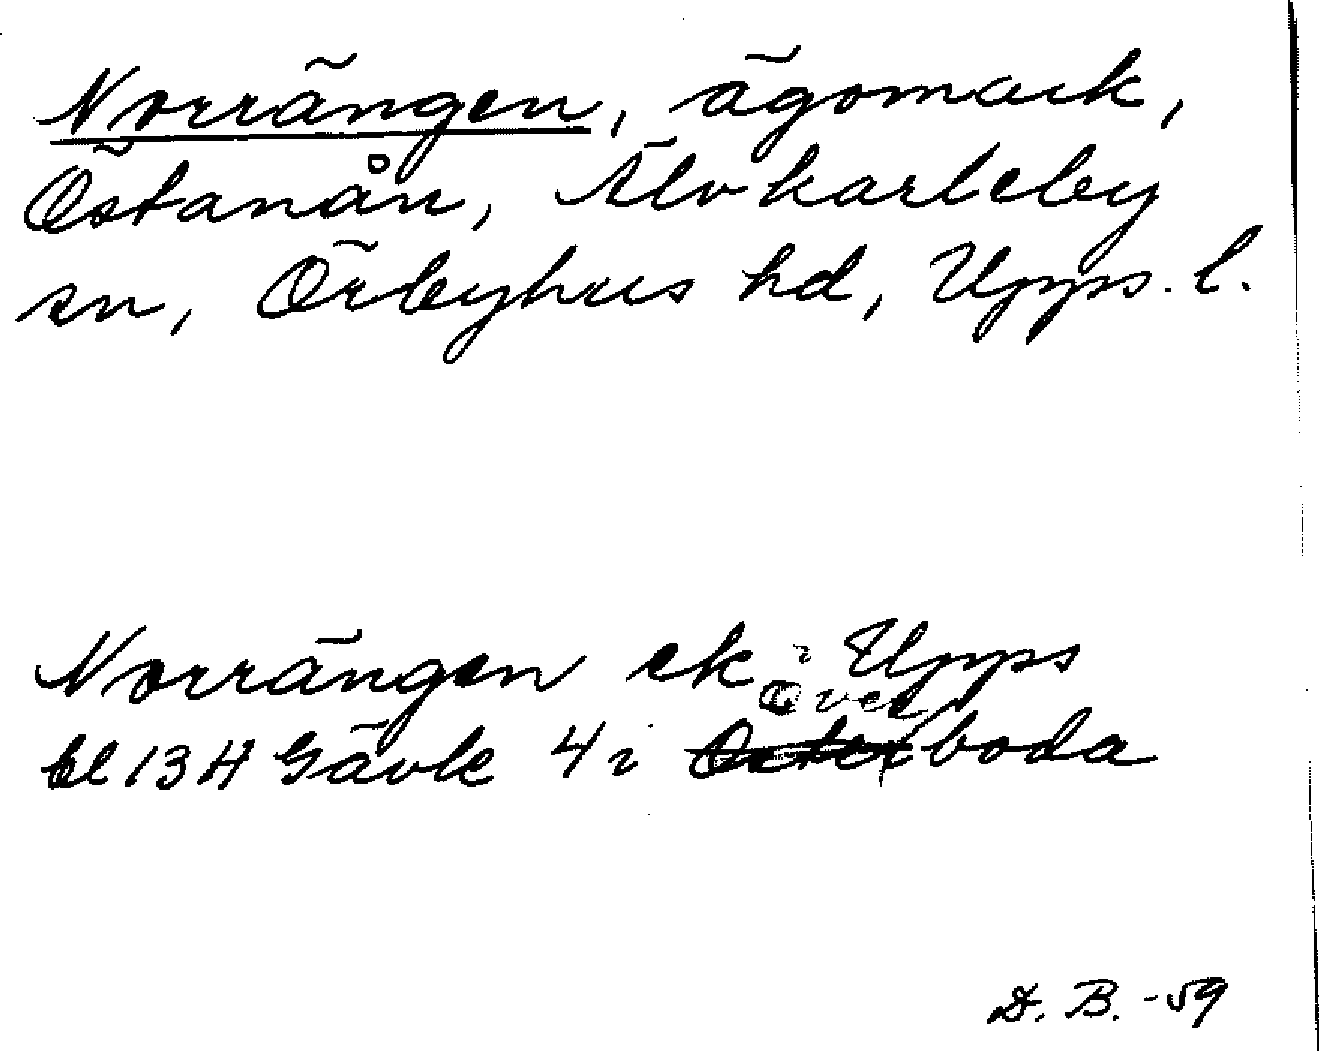 Norrängen, ägomark,
Östanån, Älvkarleby
sn, Örbyhus hd, Upps. l.
Norrängen ek i Upps
Över
bl 13 H Gävle 4 i Österboda
D. B. -59